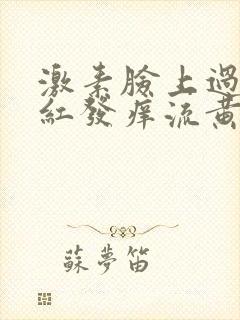 激素臉上過
紅發痒流黃
蘇夢笛